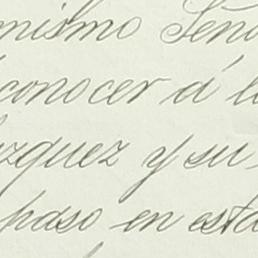 mismo Seño
conocer á l
zquez y su
paso en esta